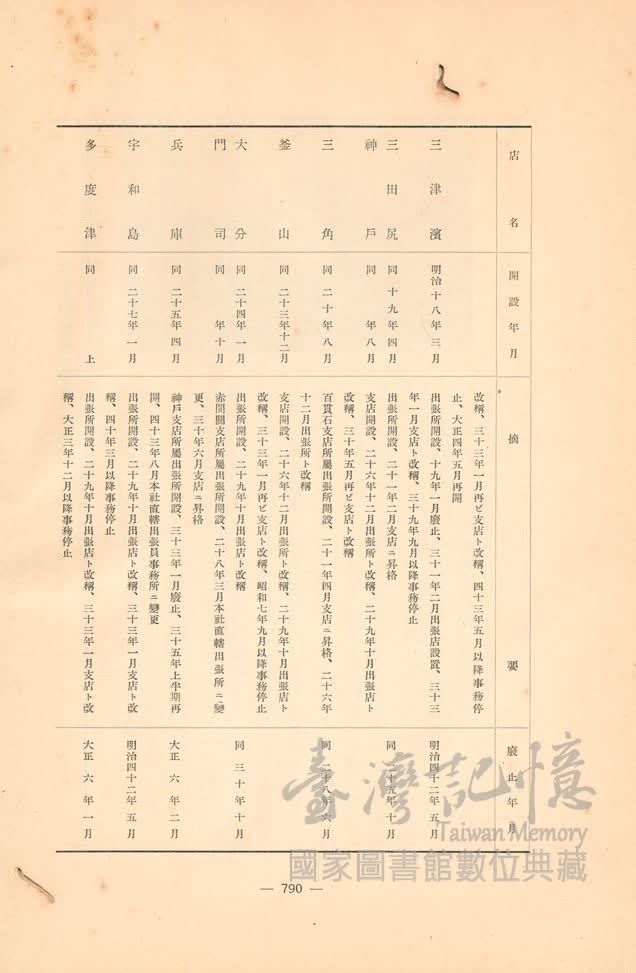 店名
開設年月
摘要
廢止年月
改稱、三十三年一月再ビ支店ト改稱、四十三年五月以降事務停
止、大正四年五月再開
三津濱
明治十八年三月
出張所開設、十九年一月廢止、三十一年二月出張店設置、三十三
年一月支店ト改稱、三十九年九月以降事務停止
明治四十二年五月
三田尻
同十九年四月
出張所開設、二十一年二月支店ニ昇格
同二十五年十月
神戶
同年八月
支店開設、二十六年十二月出張所ト改稱、二十九年十月出張店ト
改稱、三十年五月再ビ支店ト改稱
三角
同二十年八月
百貫石支店所屬出張所開設、二十一年四月支店ニ昇格、二十六年
十二月出張所ト改稱
同二十八年六月
釜山
同二十三年十二月
支店開設、二十六年十二月出張所ト改稱、二十九年十月出張店ト
改稱、三十三年一月再ビ支店ト改稱、昭和七年九月以降事務停止
大分
同二十四年一月
出張所開設、二十九年十月出張店ト改稱
同三十年十月
門司
同年十月
赤間關支店所屬出張所開設、二十八年三月本社直轄出張所ニ變
更、三十年六月支店ニ昇格
兵庫
同二十五年四月
神戶支店所屬出張所開設、三十三年一月廢止、三十五年上半期再
開、四十三年八月本社直轄出張員事務所ニ變更
大正六年二月
宇和島
同二十七年一月
出張所開設、二十九年十月出張店ト改稱、三十三年一月支店ト改
稱、四十年三月以降事務停止
明治四十二年五月
多度津
同上
出張所開設、二十九年十月出張店ト改稱、三十三年一月支店ト改
稱、大正三年十二月以降事務停止
大正六年一月
— 790 —
臺灣記憶
Taiwan Memory
國家圖書館數位典藏